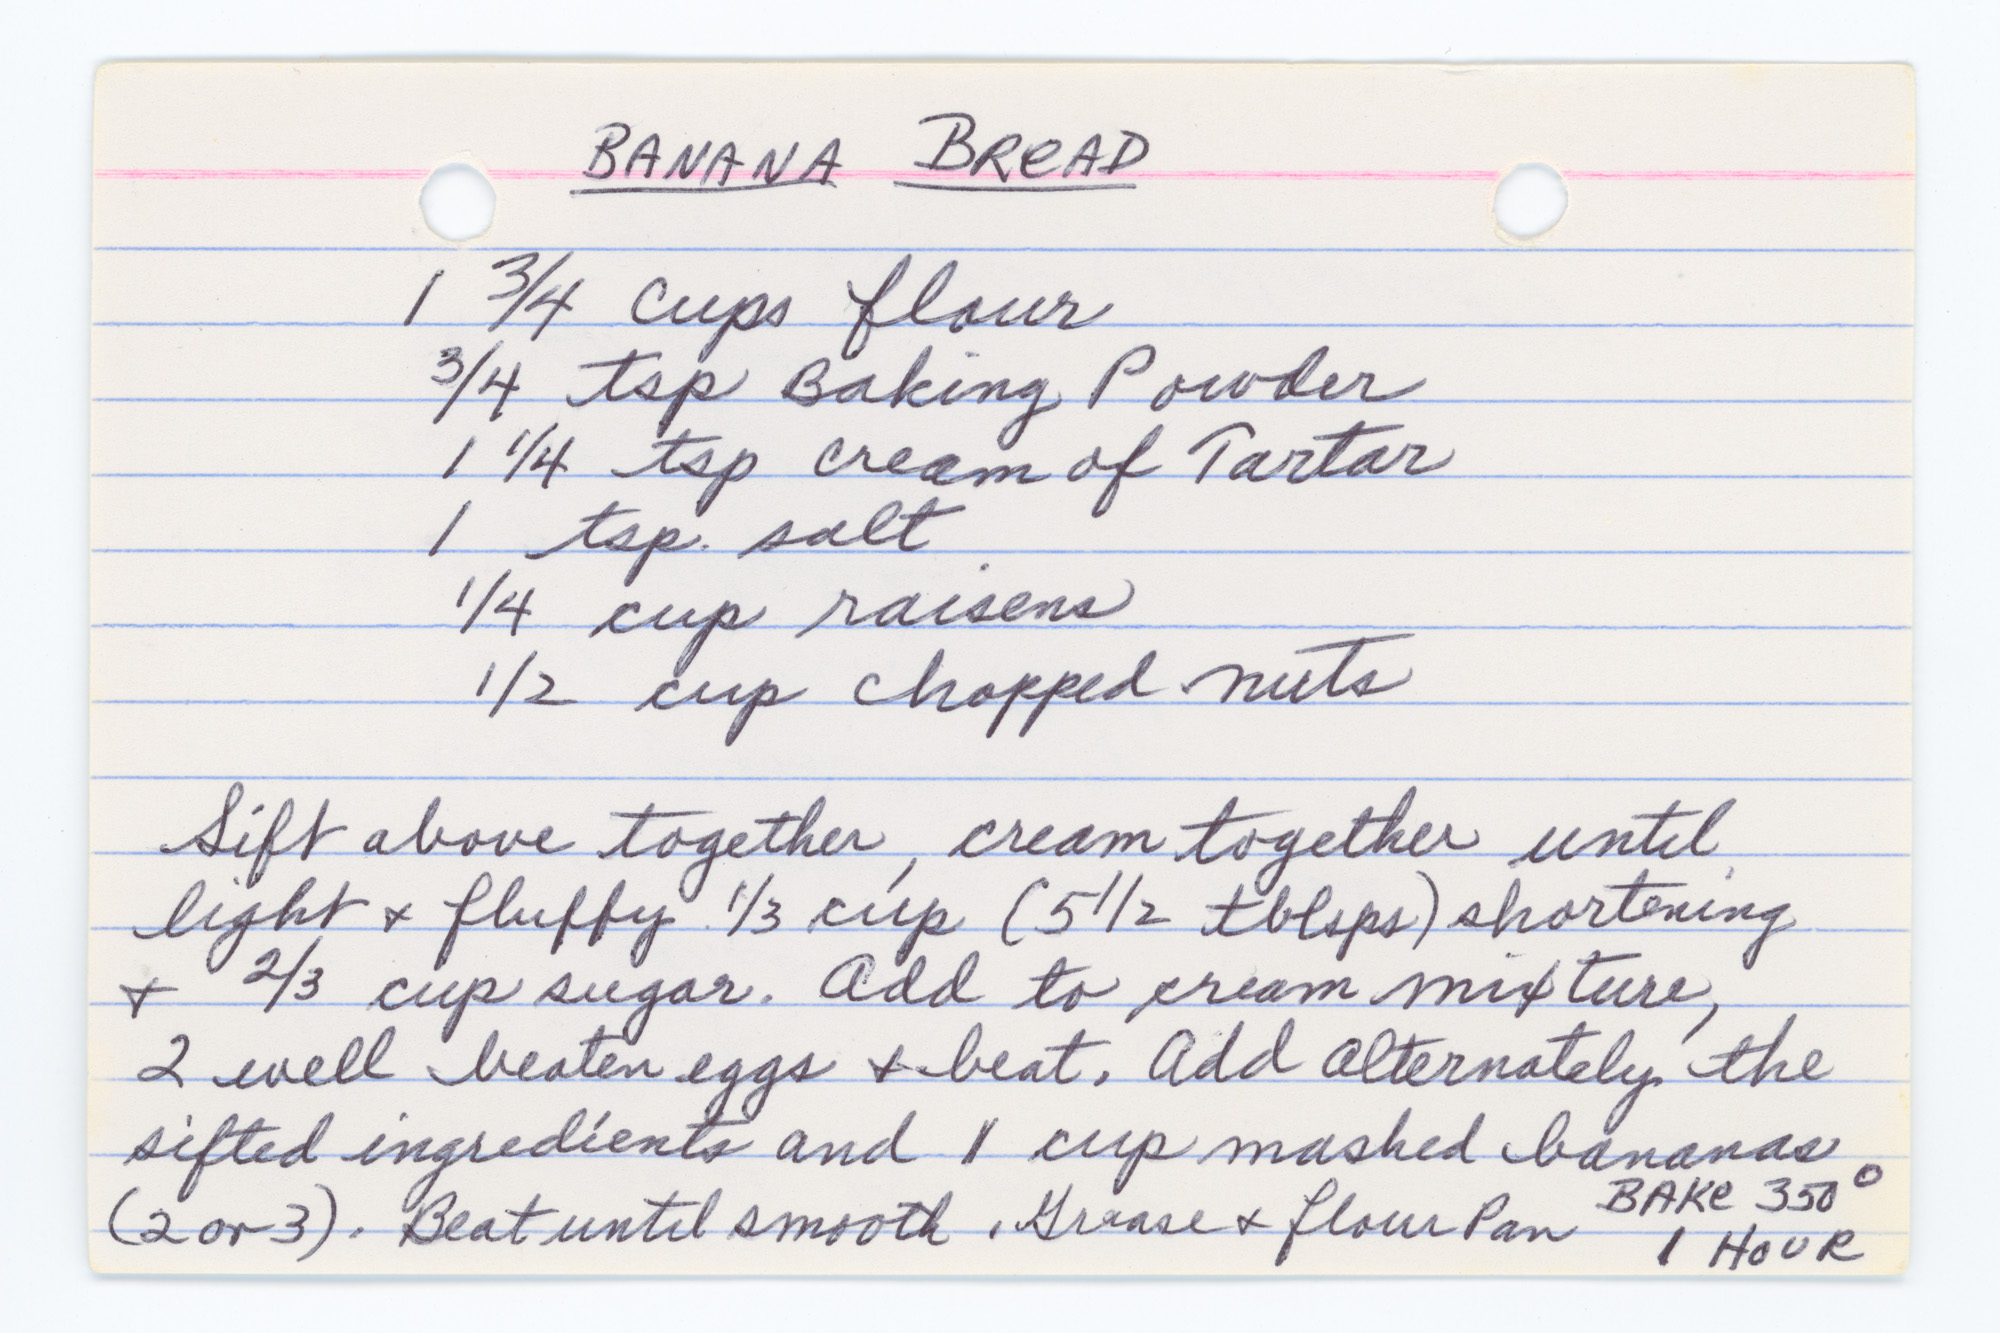 BANANA BREAD
1 3/4 cups flour
3/4 tsp Baking Powder
1 1/4 tsp cream of Tartar
1 tsp. salt
1/4 cup raisens
1/2 cup chopped nuts
Sift above together, cream together until
light & fluffy 1/3 cup (5 1/2 tblsps) shortening
& 2/3 cup sugar. Add to cream mixture,
2 well beaten eggs & beat. Add alternately the
sifted ingredients and 1 cup mashed bananas
(2 or 3). Beat until smooth. Grease & flour Pan BAKe 350°
1 HOUR